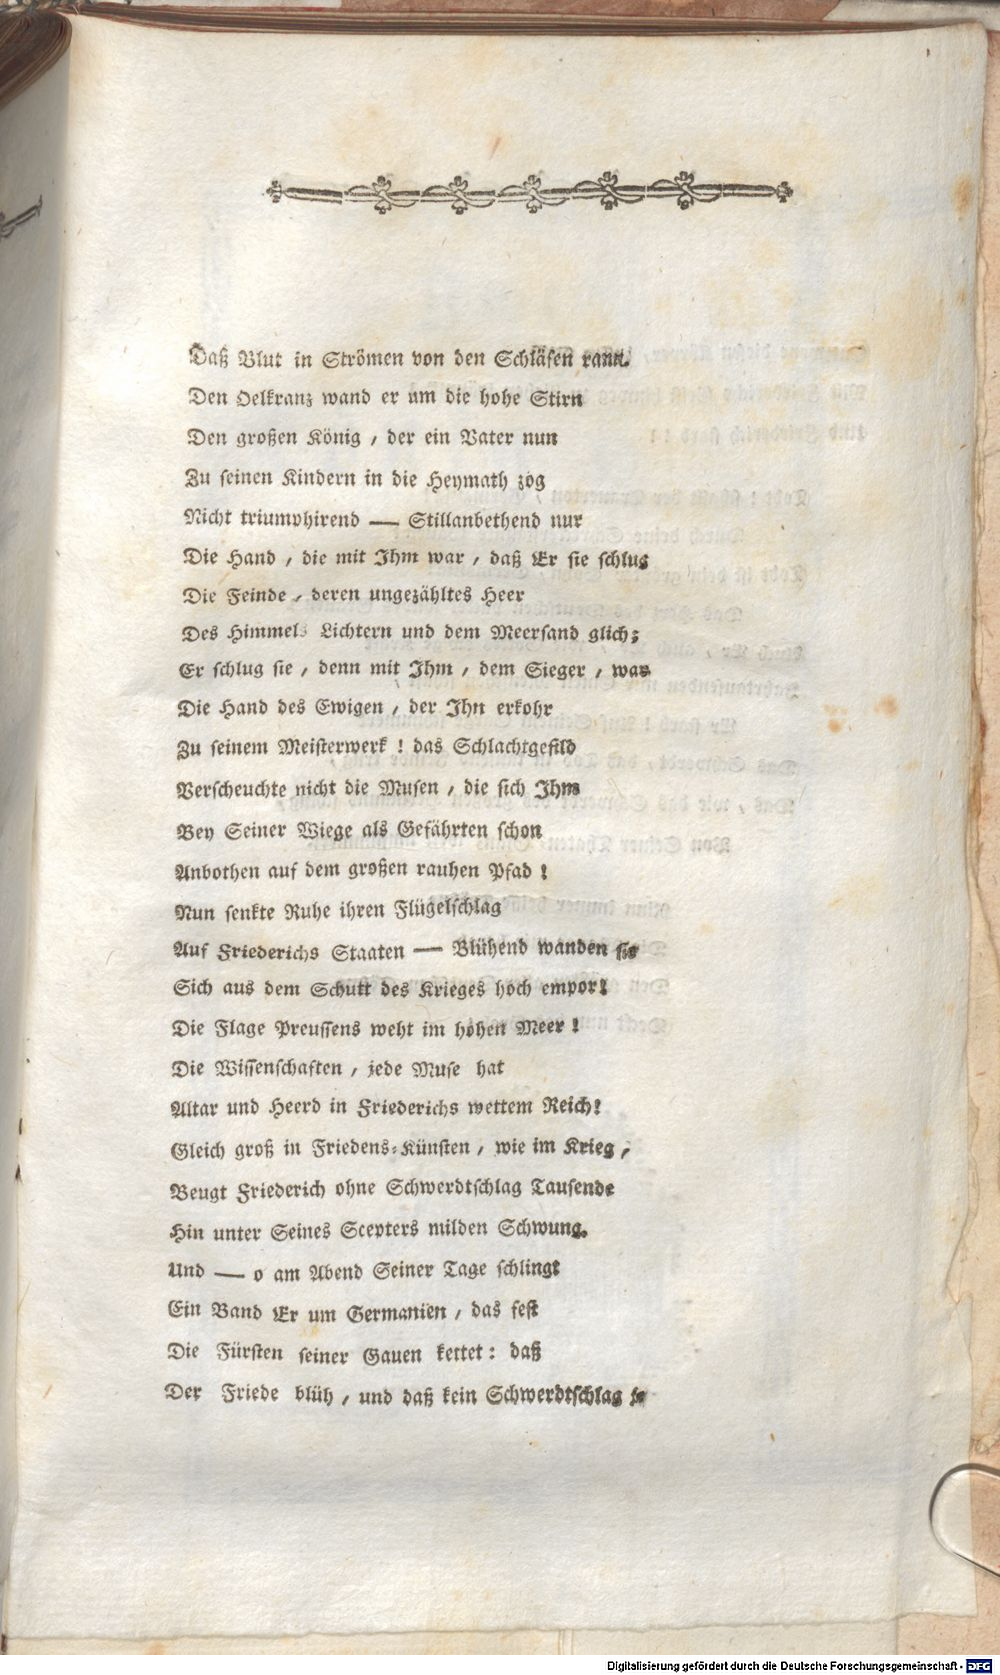 Daß Blut in Strömen von den Schläfen rann.
Den Oelkranz wand er um die hohe Stirn
Den großen König, der ein Vater nun
Zu seinen Kindern in die Heymath zog
Nicht triumphirend — Stillanbethend nur
Die Hand, die mit Ihm war, daß Er sie schlug
Die Feinde, deren ungezähltes Heer
Des Himmels Lichtern und dem Meersand glich;
Er schlug sie, denn mit Ihm, dem Sieger, war
Die Hand des Ewigen, der Ihn erkohr
Zu seinem Meisterwerk! das Schlachtgefild
Verscheuchte nicht die Musen, die sich Ihm
Bey Seiner Wiege als Gefährten schon
Anbothen auf dem großen rauhen Pfad!
Nun senkte Ruhe ihren Flügelschlag
Auf Friederichs Staaten — Blühend wanden sie
Sich aus dem Schutt des Krieges hoch empor!
Die Flage Preussens weht im hohen Meer!
Die Wissenschaften, jede Muse hat
Altar und Heerd in Friederichs wettem Reich!
Gleich groß in Friedens-Künsten, wie im Krieg,
Beugt Friederich ohne Schwerdtschlag Tausende
Hin unter Seines Scepters milden Schwung.
Und — o am Abend Seiner Tage schlingt
Ein Band Er um Germanien, das fest
Die Fürsten seiner Gauen kettet: daß
Der Friede blüh, und daß kein Schwerdtschlag je
Digitalisierung gefördert durch die Deutsche Forschungsgemeinschaft - DFG